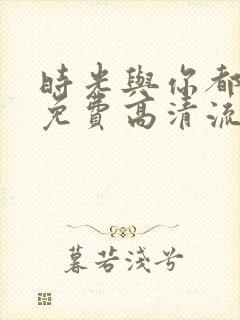 時光與你都
免費高清流
暮若淺兮